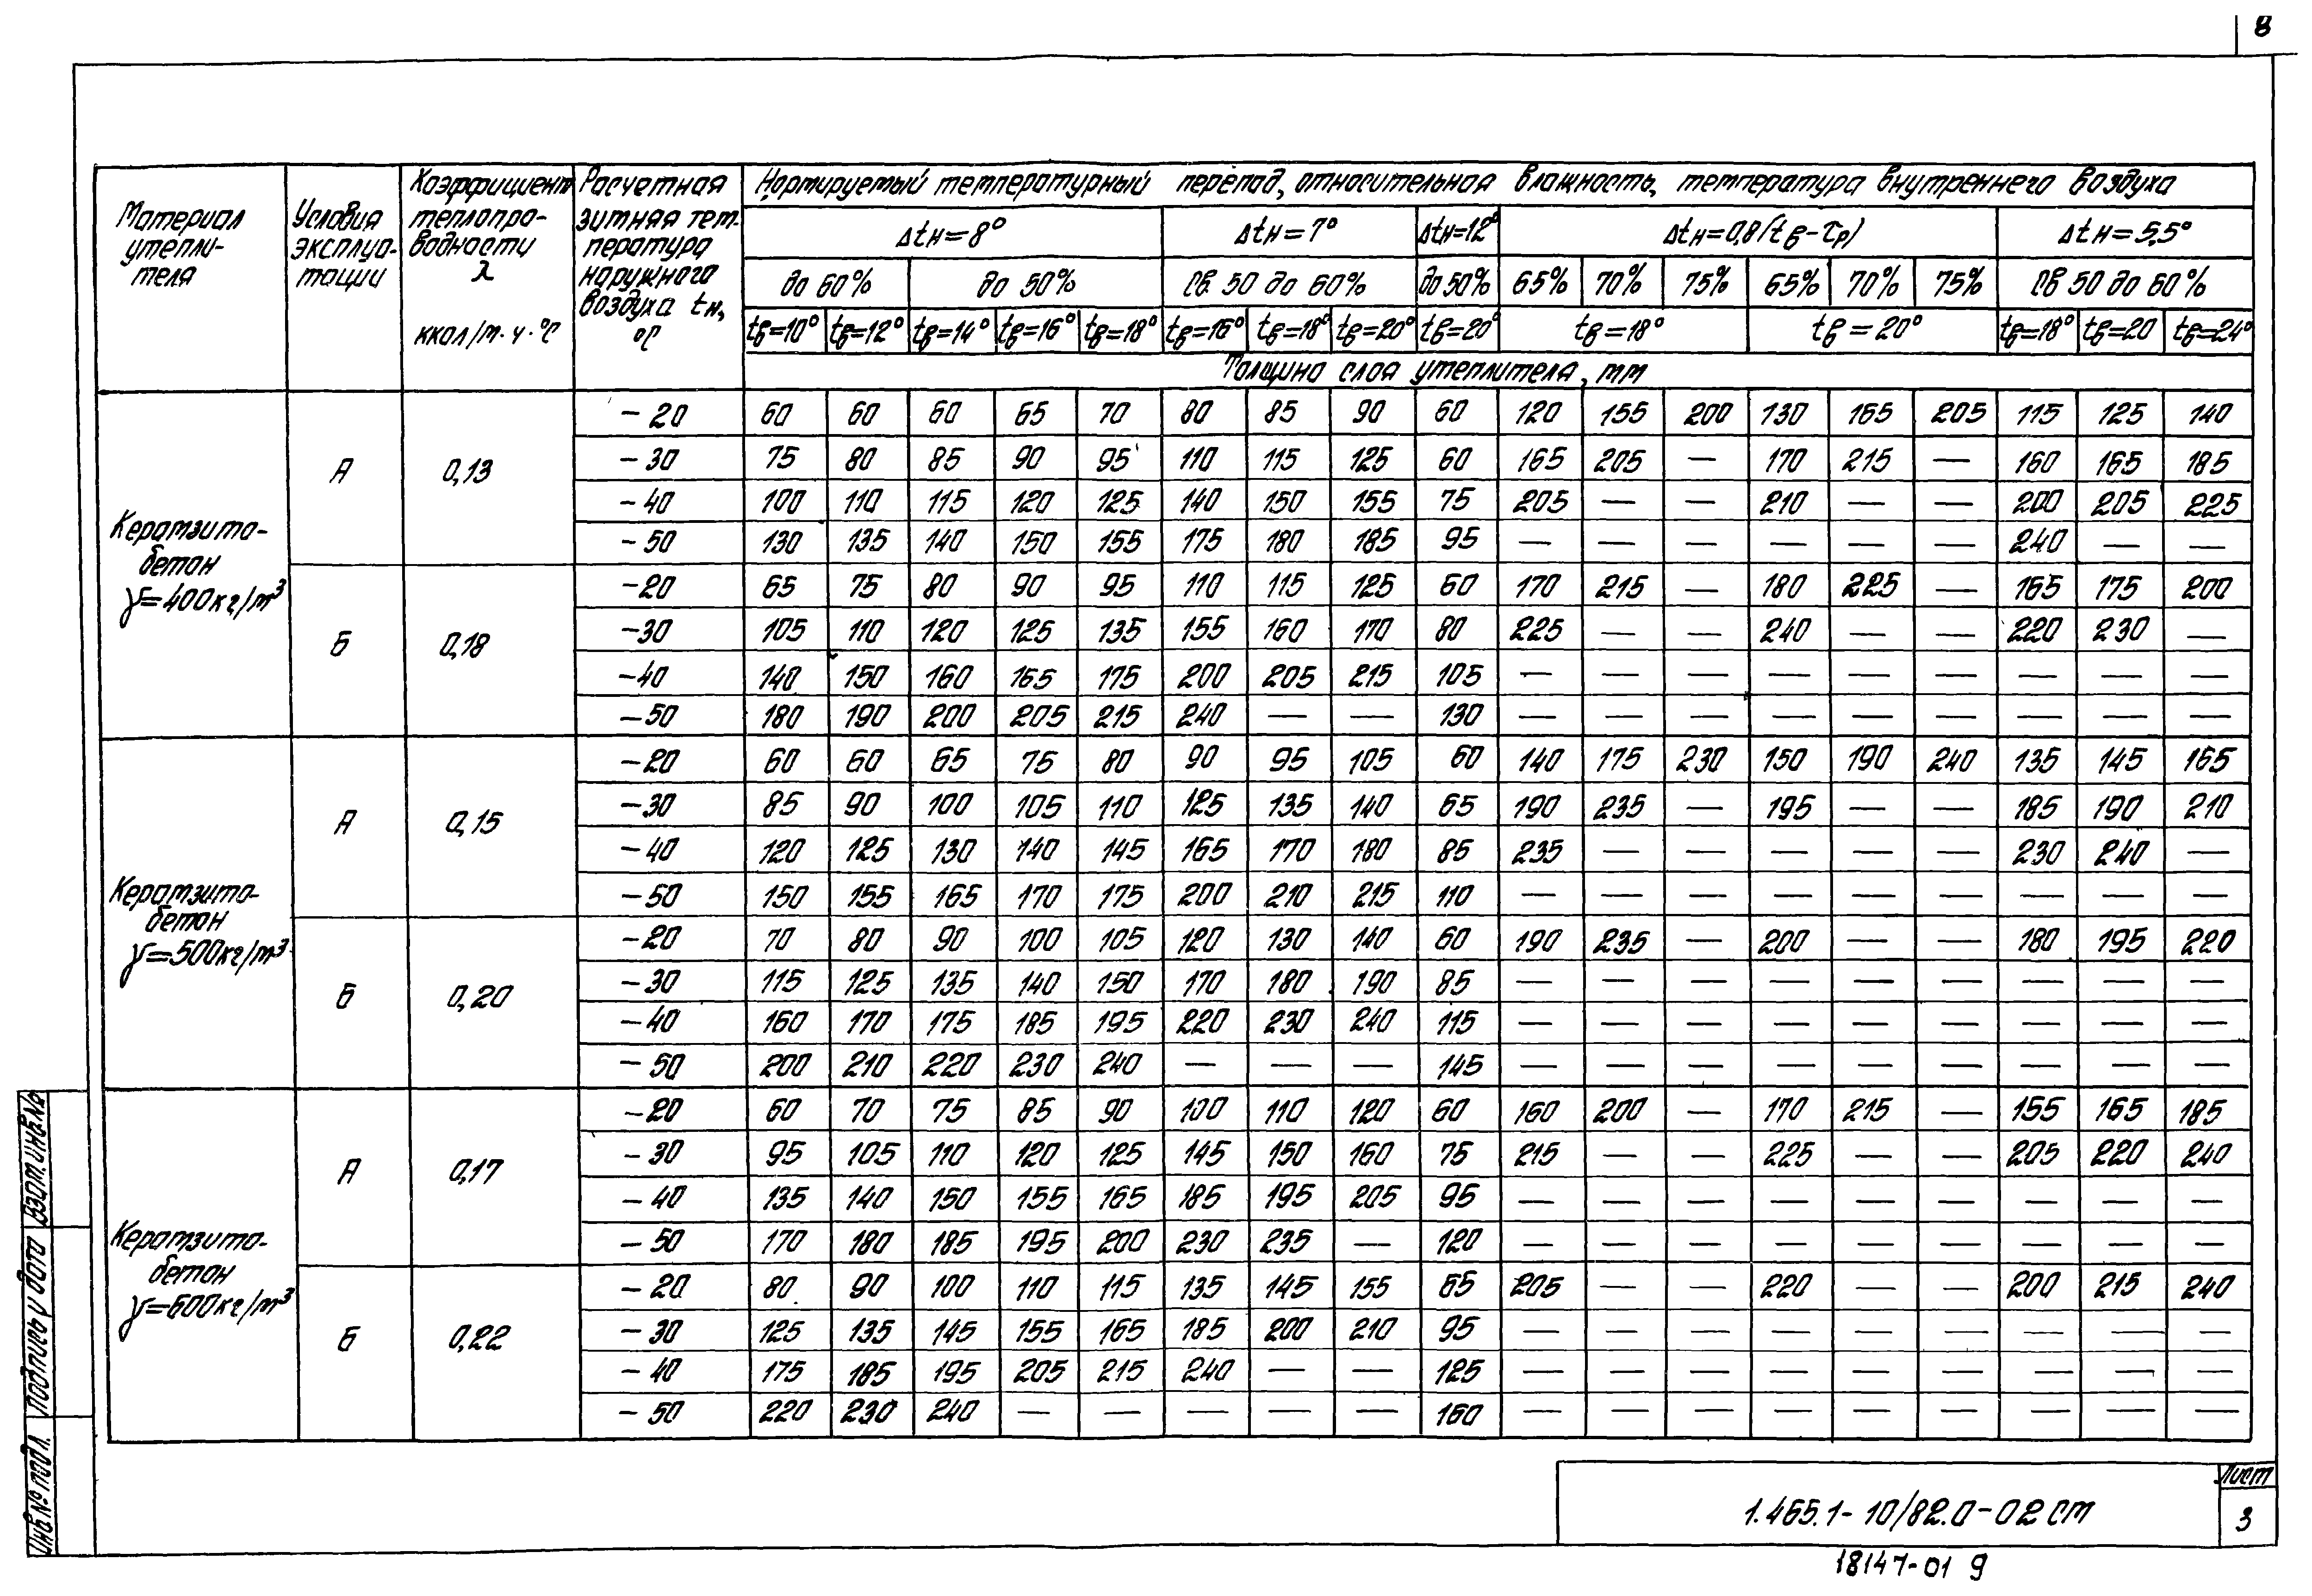 8
Материал утепли- теля
Условия эксплуа- тации
Коэффициент теплопро- водности λ ккал/м·ч·°С
Расчетная зимняя тем- пература наружного воздуха tн, °С
Нормируемый температурный перепад, относительная влажность, температура внутреннего воздуха
Δtн=8° Δtн=7° Δtн=12° Δtн=0,8(tв-τр) Δtн=5,5°
до 60% до 50% св 50 до 60% до 50% 65% 70% 75% 65% 70% 75% св 50 до 60%
tв=10° tв=12° tв=14° tв=16° tв=18° tв=16° tв=18° tв=20° tв=20° tв=18° tв=20° tв=18° tв=20 tв=24°
Толщина слоя утеплителя, мм
Керамзито- бетон γ=400кг/м³
А 0,13
-20 60 60 60 65 70 80 85 90 60 120 155 200 130 165 205 115 125 140
-30 75 80 85 90 95 110 115 125 60 165 205 — 170 215 — 160 165 185
-40 100 110 115 120 125 140 150 155 75 205 — — 210 — — 200 205 225
-50 130 135 140 150 155 175 180 185 95 — — — — — — 240 — —
Б 0,18
-20 65 75 80 90 95 110 115 125 60 170 215 — 180 225 — 165 175 200
-30 105 110 120 125 135 155 160 170 80 225 — — 240 — — 220 230 —
-40 140 150 160 165 175 200 205 215 105 — — — — — — — — —
-50 180 190 200 205 215 240 — — 130 — — — — — — — — —
Керамзито- бетон γ=500кг/м³
А 0,15
-20 60 60 65 75 80 90 95 105 60 140 175 230 150 190 240 135 145 165
-30 85 90 100 105 110 125 135 140 65 190 235 — 195 — — 185 190 210
-40 120 125 130 140 145 165 170 180 85 235 — — — — — 230 240 —
-50 150 155 165 170 175 200 210 215 110 — — — — — — — — —
Б 0,20
-20 70 80 90 100 105 120 130 140 60 190 235 — 200 — — 180 195 220
-30 115 125 135 140 150 170 180 190 85 — — — — — — — — —
-40 160 170 175 185 195 220 230 240 115 — — — — — — — — —
-50 200 210 220 230 240 — — — 145 — — — — — — — — —
Керамзито- бетон γ=600кг/м³
А 0,17
-20 60 70 75 85 90 100 110 120 60 160 200 — 170 215 — 155 165 185
-30 95 105 110 120 125 145 150 160 75 215 — — 225 — — 205 220 240
-40 135 140 150 155 165 185 195 205 95 — — — — — — — — —
-50 170 180 185 195 200 230 235 — 120 — — — — — — — — —
Б 0,22
-20 80 90 100 110 115 135 145 155 65 205 — — 220 — — 200 215 240
-30 125 135 145 155 165 185 200 210 95 — — — — — — — — —
-40 175 185 195 205 215 240 — — 125 — — — — — — — — —
-50 220 230 240 — — — — — 160 — — — — — — — — —
Инв.№ подл. Подпись и дата Взам.инв.№
1.465.1-10/82.0-02СМ
Лист
3
18147-01 9